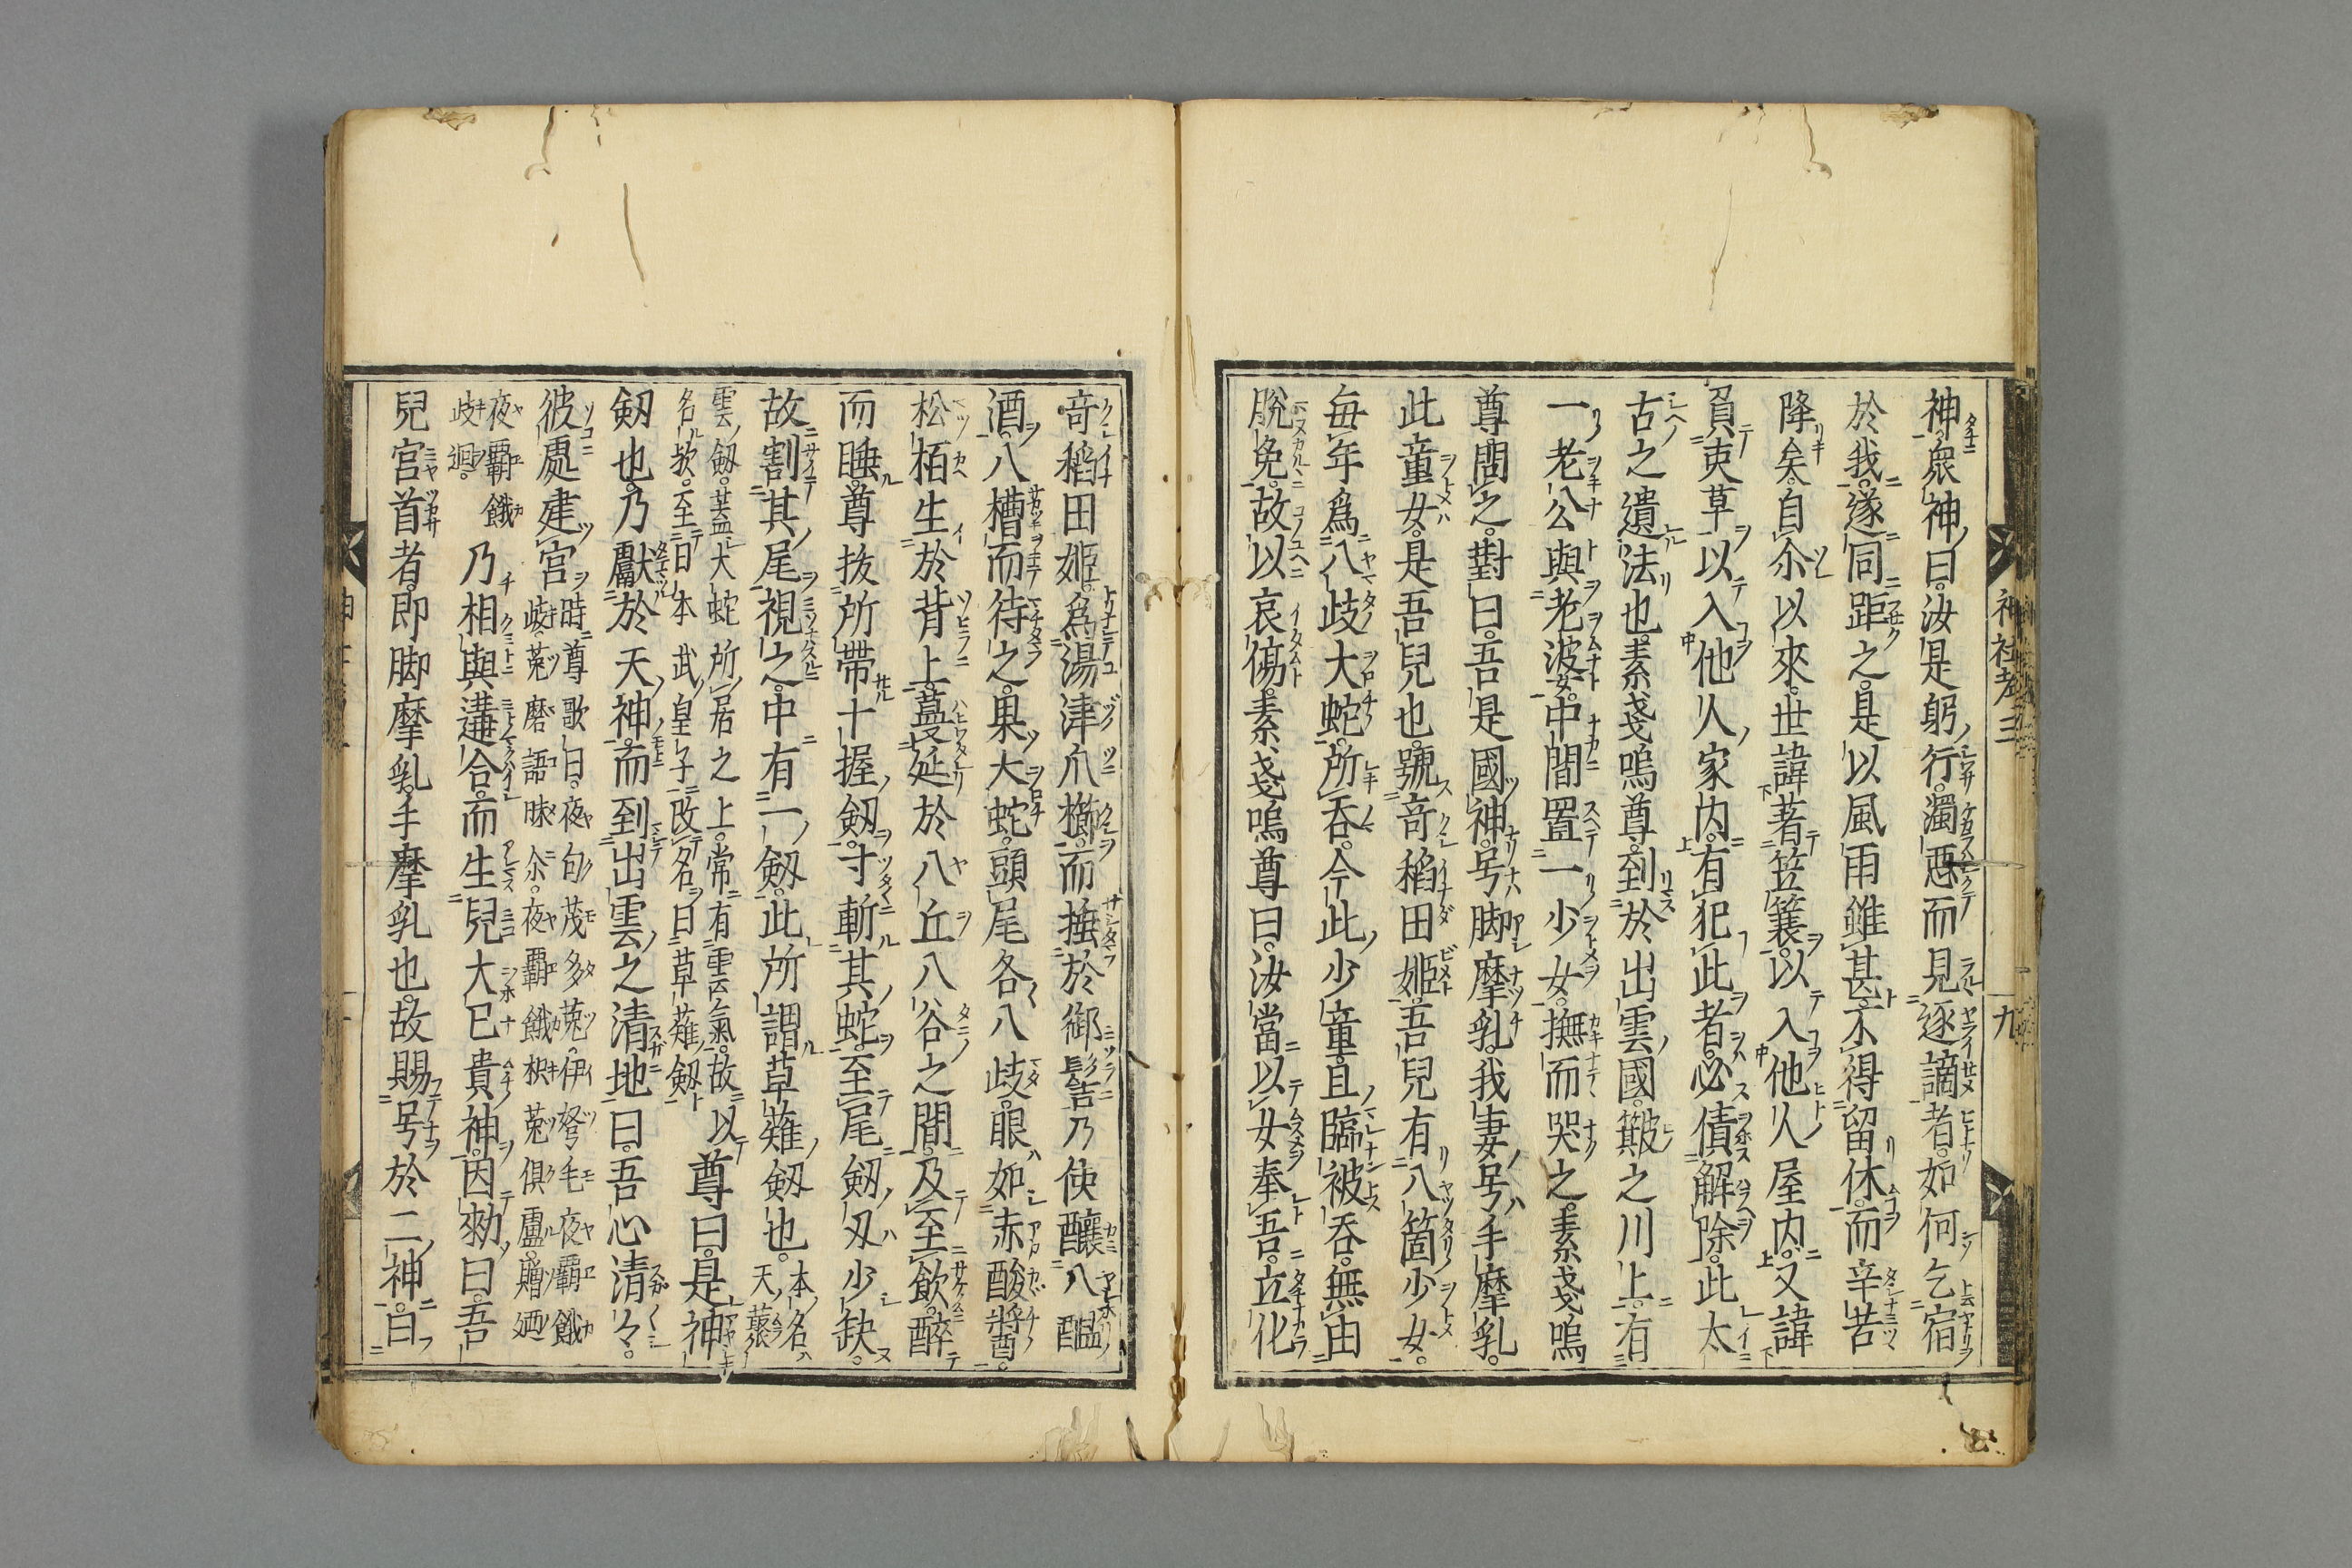 神。衆神曰。汝是躬行。濁惡而見逐謫者。如何乞宿
於我。遂同距之。是以風雨雖甚。不得留休。而辛苦
降矣。自尒以來。世諱著笠簑。以入他人屋内。又諱
負束草以入他人家内。有犯此者。必債解除。此太
古之遺法也。素戔嗚尊。到於出雲國。簸之川上。有
一老公與老婆。中間置一少女。撫而哭之。素戔嗚
尊問之。對曰。吾是國神。号脚摩乳。我妻号手摩乳。
此童女。是吾兒也。號奇稻田姫。吾兒有八箇少女。
毎年爲八歧大蛇。所呑。今此少童。且臨被呑。無由
脫免。故以哀傷。素戔嗚尊曰。汝當以女奉吾。立化
神社考三
九
奇稻田姫。爲湯津爪櫛。而插於御髻。乃使釀八醞
酒。八槽而待之。果大蛇。頭尾各八歧。眼如赤酸醬。
松栢生於背上。蔓延於八丘八谷之間。及至飲。醉
而睡。尊抜所帶十握劔。寸斬其蛇。至尾劔刄少缺。
故割其尾視之。中有一劔。此所謂草薙劔也。本名天藂
雲劔。蓋大蛇所居之上。常有雲氣。故以
名欤。至日本武皇子。改名曰草薙劔
尊曰。是神
劔也。乃獻於天神。而到出雲之清地曰。吾心清々。
彼處建宮
時尊歌曰。夜句茂多菟。伊弩毛夜覇餓
歧。菟磨語昧尒。夜覇餓枳菟俱盧。贈廼
夜覇餓
歧廻。
乃相與遘合。而生兒大巳貴神。因勑曰。吾
兒宮首者。即脚摩乳。手摩乳也。故賜号於二神。曰